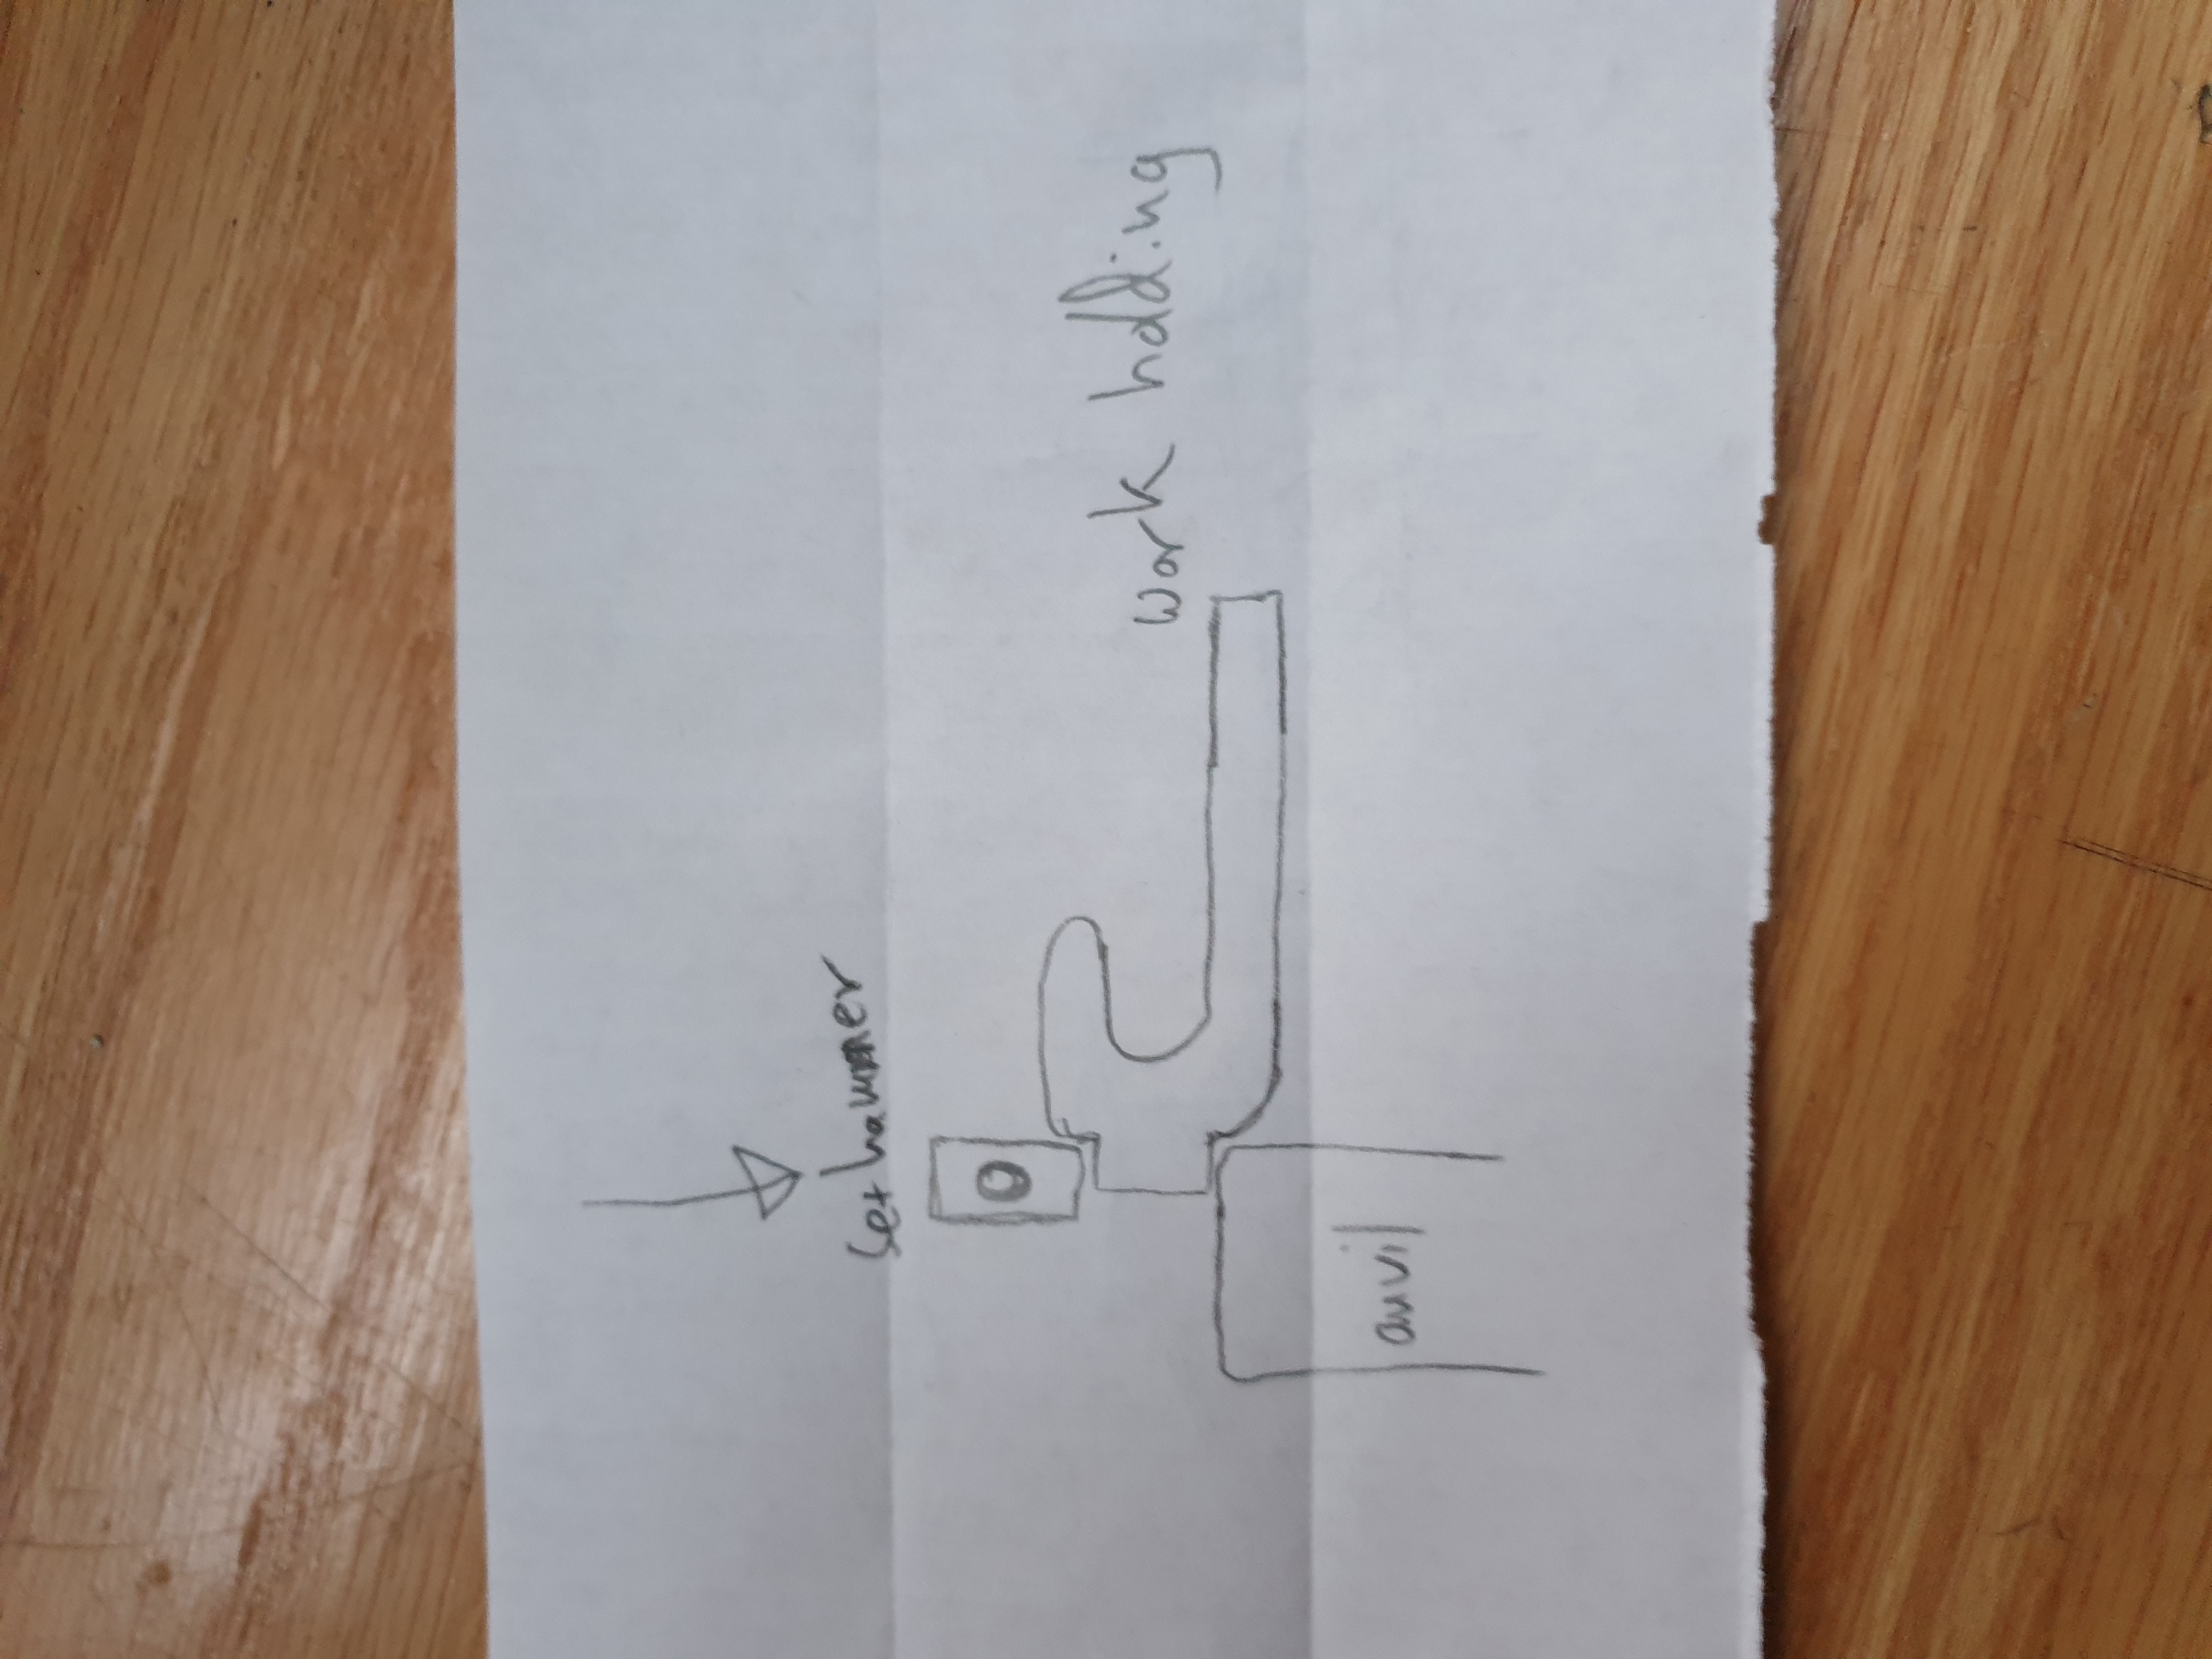 set hammer
work holding
anvil